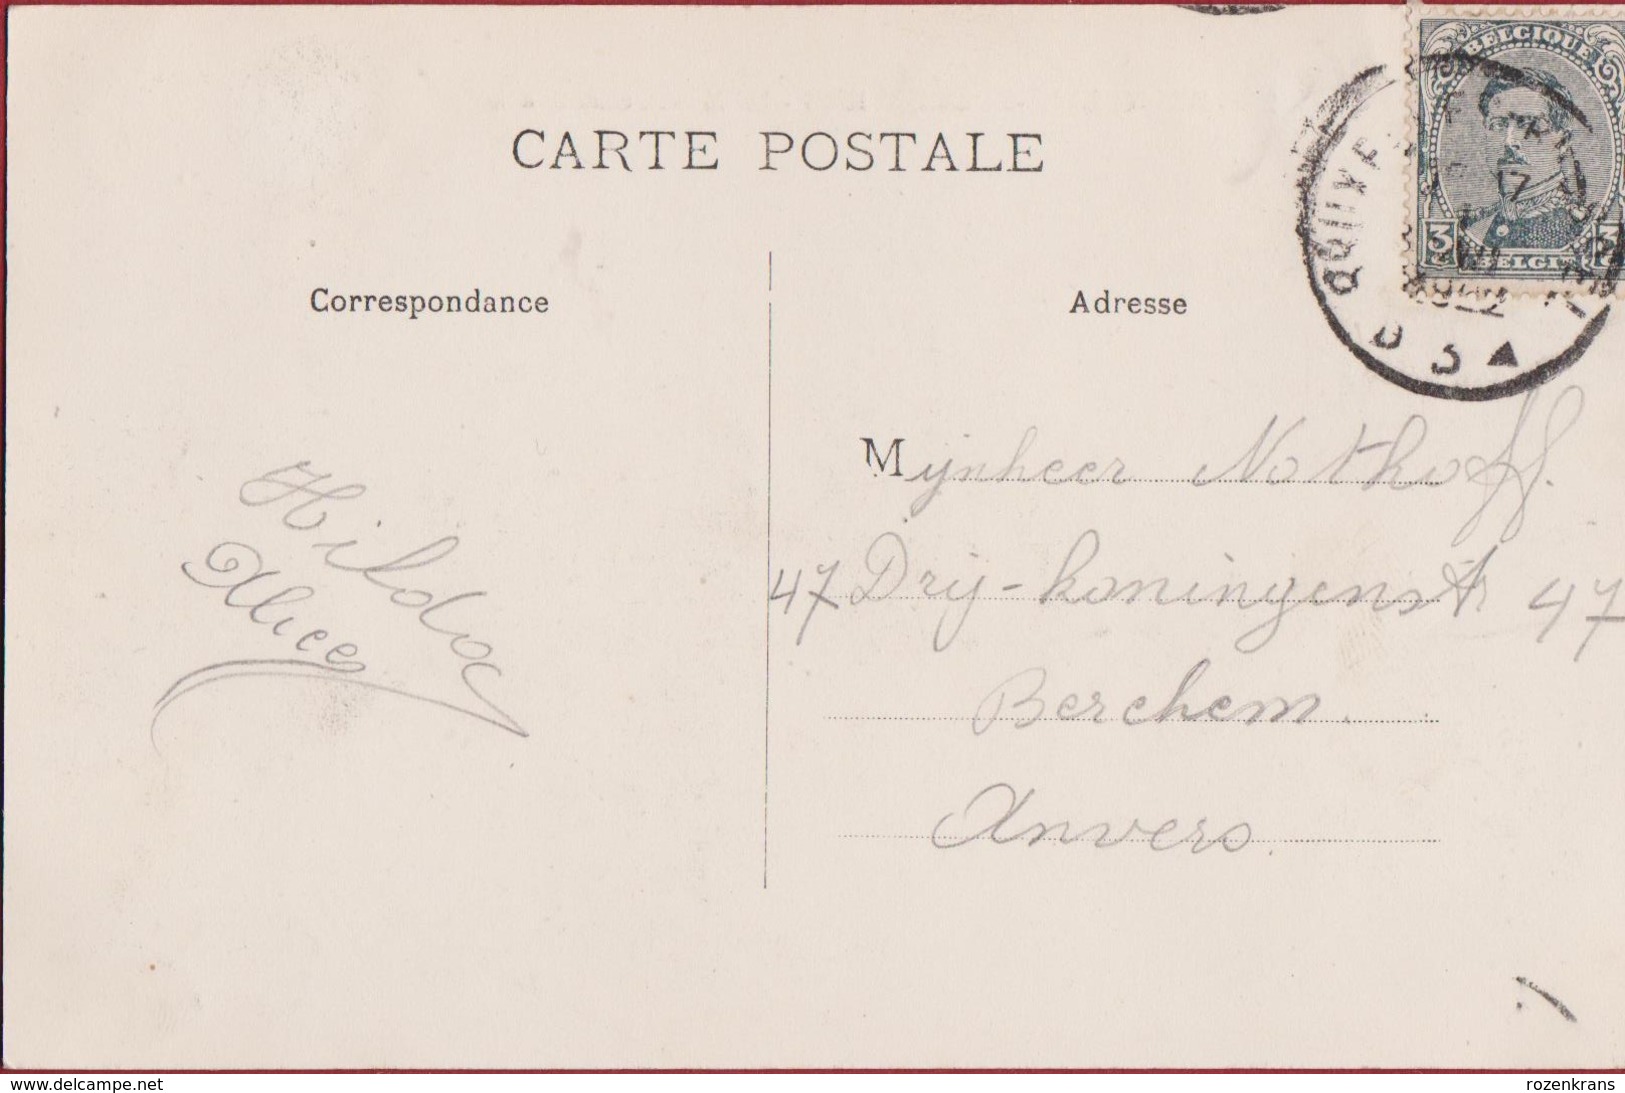 CARTE POSTALE
BELGIQUE
3
BELGIË
17
B 3
Correspondance
Adresse
Hilda
Alice
Mynheer Nothoff.
47 Dry-koningenstr 47
Berchem
Anvers
www.delcampe.net
rozenkrans